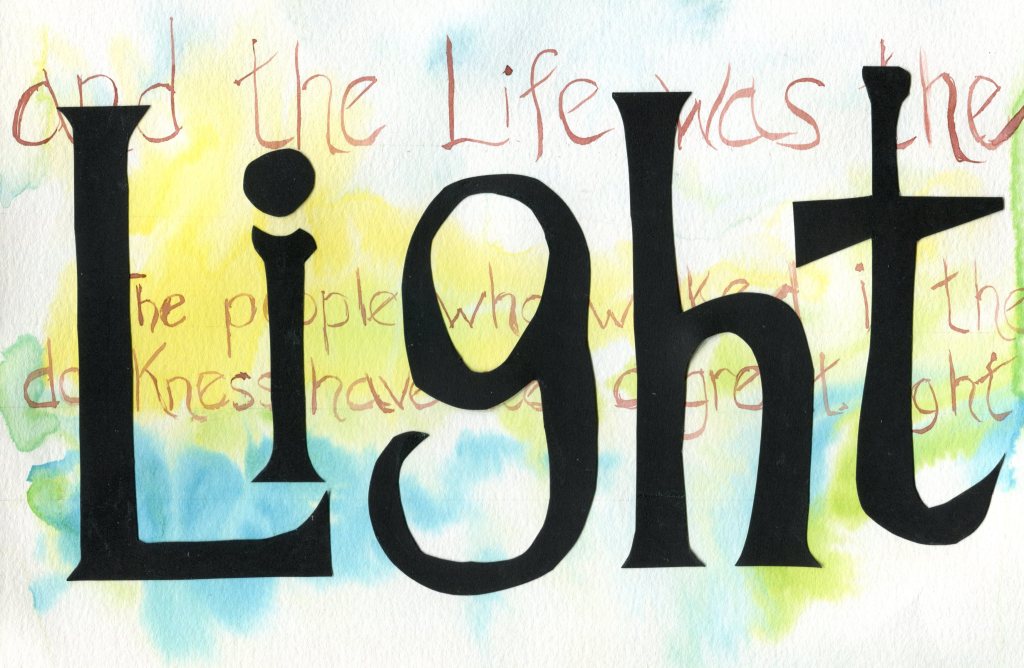 and the Life was the
Light
The people who walked in the
darkness have seen a great light